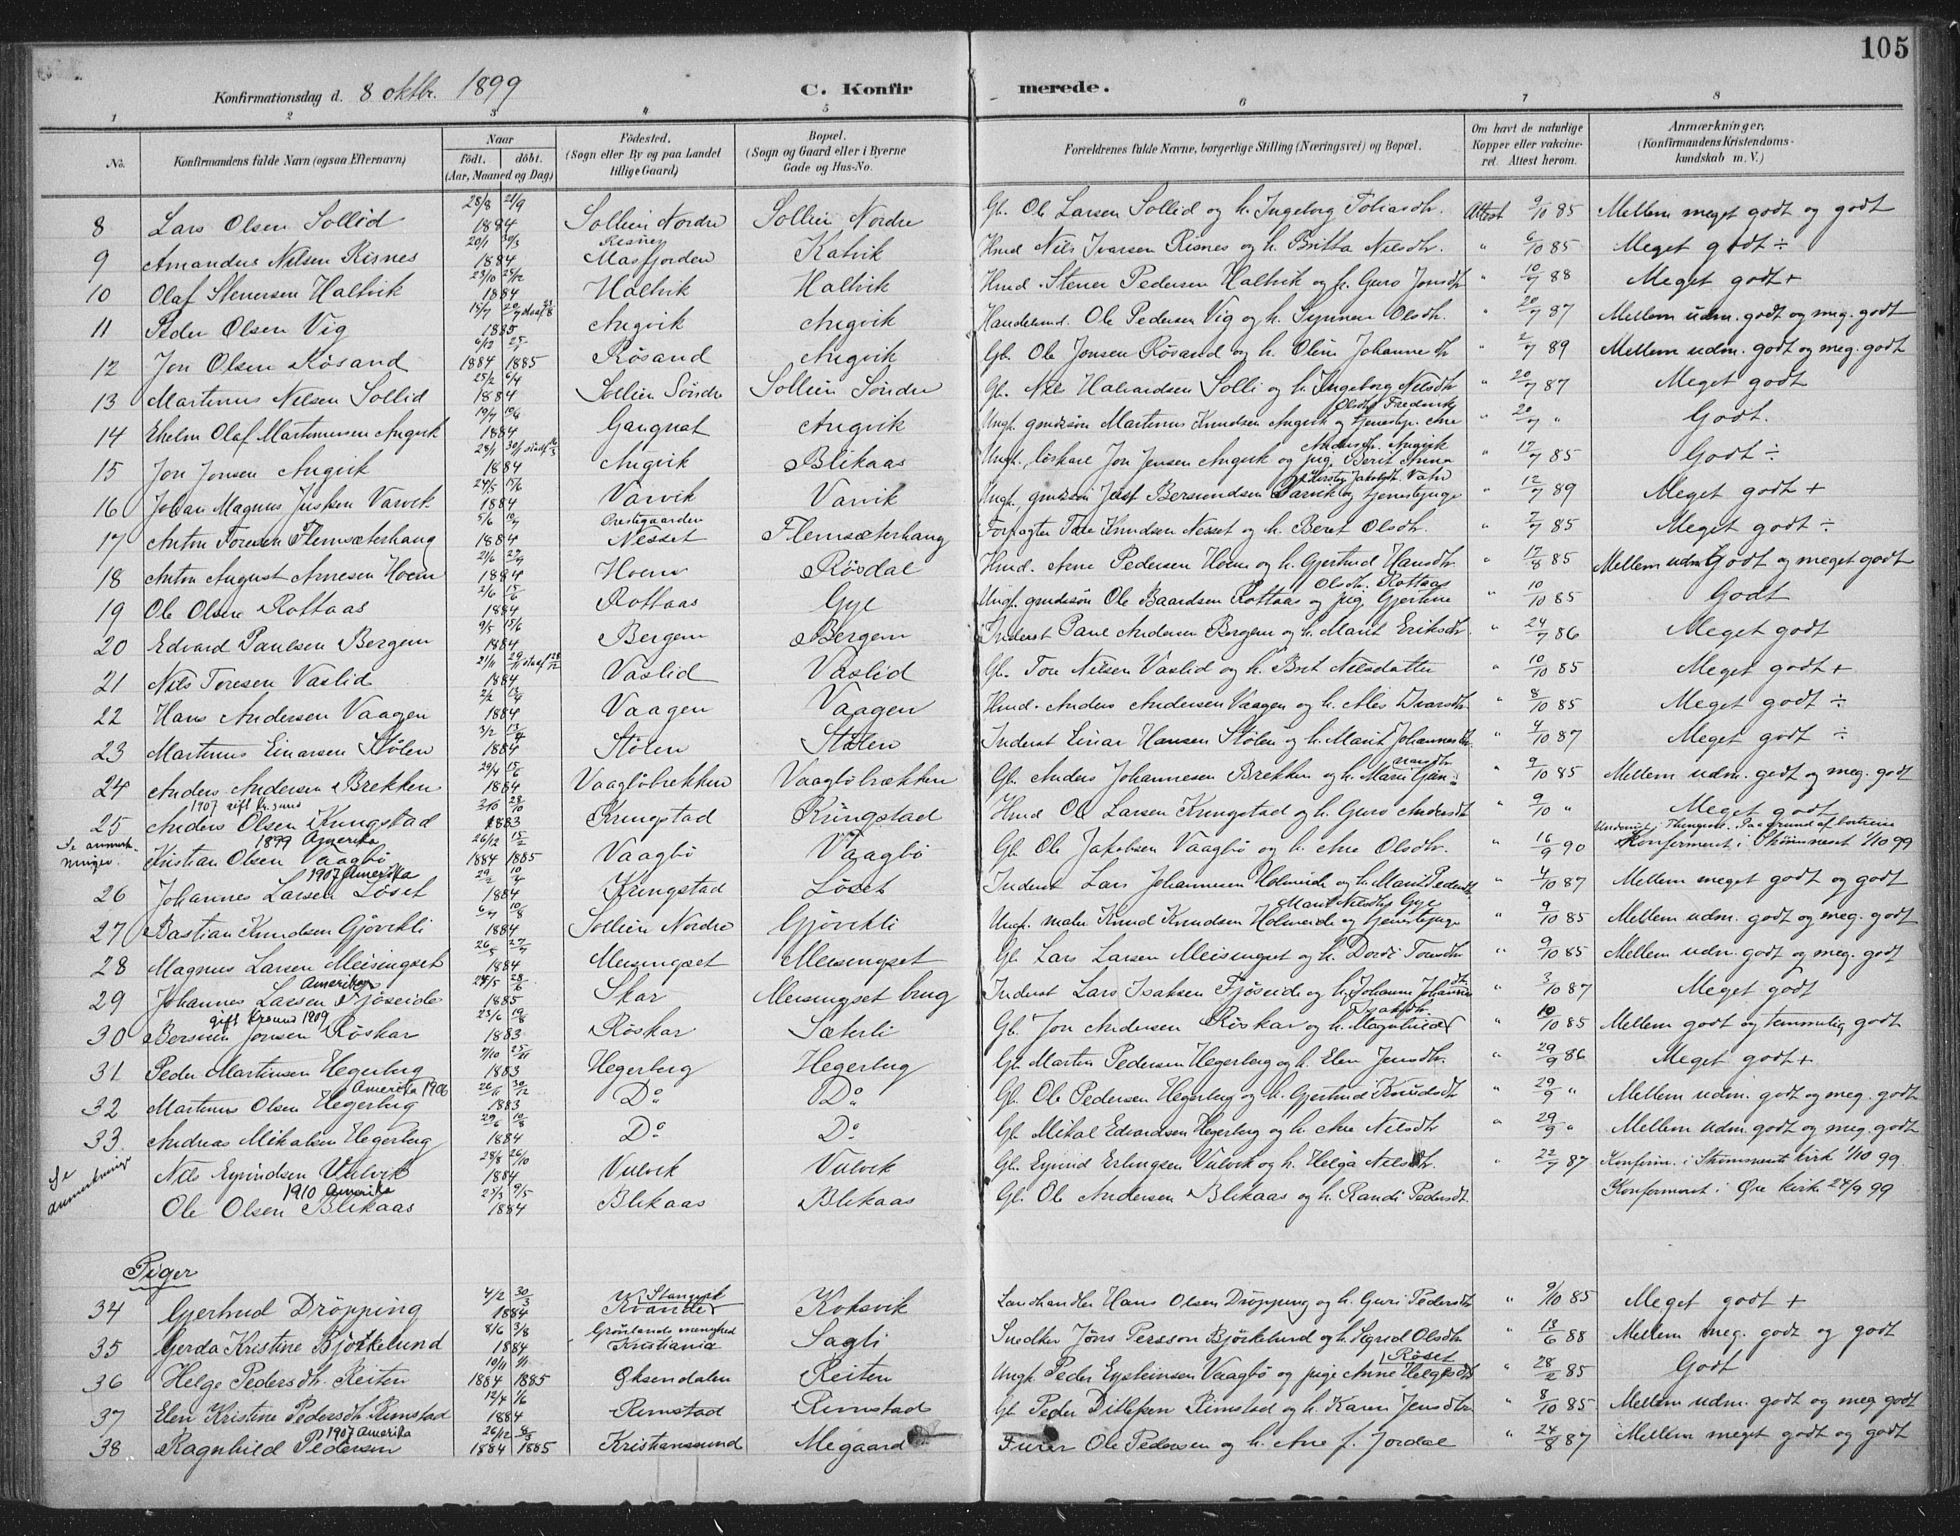 105
Konfirmationsdag d. 8 oktbr. 1899 C. Konfirmerede.
1 2 3 4 5 6 7 8
No. Konfirmandens fulde Navn (ogsaa Efternavn) Naar födt. döbt. (Aar, Maaned og Dag) Födested. (Sogn eller By og paa Landet tillige Gaard) Bopæl. (Sogn og Gaard eller i Byerne Gade og Hus-No. Forældrenes fulde Navne, borgerlige Stilling (Næringsvei) og Bopæl. Om havt de naturlige Kopper eller vakcineret. Attest herom. Anmærkninger, (Konfirmandens Kristendomskundskab m. V.)
8 Lars Olsen Sollid 28/8 21/9 1884 Sollien Nordre Sollien Nordre Gb. Ole Larsen Sollid og h. Ingeborg Tobiasdtr. Attest 9/10 85 Mellem meget godt og godt
9 Amandus Nilsen Risnes 20/1 30/3 1884 Risnes Masfjorden Katvik Hmd Nils Ivarsen Risnes og h. Britta Nilsdtr. " 6/10 85 Meget godt ÷
10 Olaf Stenersen Haltvik 23/10 25/12 1884 Haltvik Haltvik Hmd. Stener Pedersen Haltvik og h. Guro Jonsdtr " 10/7 88 Meget godt +
11 Peder Olsen Vig 1885 Angvik Angvik Handelsmd. Ole Pedersen Vig og h. Synnev Olsdtr. " 20/7 87 Mellem udm. godt og meg. godt
12 Jon Olsen Røsand 6/12 1884 1885 Røsand Angvik Gb. Ole Jonsen Røsand og h. Oline Johannesdtr " 2/7 89 Mellem udm. godt og meg. godt
13 Martinus Nilsen Sollid 25/2 6/4 1884 Sollien Söndre Sollien Söndre Gb. Nils Halvardsen Solli og h. Ingeborg Nilsdtr " 20/7 87 Meget godt
14 Ehelm Olaf Martinussen Angvik 19/7 10/8 1884 Gangnat Angvik Ungk. gmdssøn Martinus Knudsen Angvik og tjenestep. Ane Olsdtr Fredsvik " 20/7 " Godt.
15 Jon Jonsen Angvik 28/1 1884 Angvik Blikaas Ungk., löskarl Jon Jensen Angvik og pig. Berit Anna Andersdtr. Angvik " 17/7 85 Godt ÷
16 Johan Magnus Jusfsen Varvik 24/5 15/6 1884 Varvik Varvik Ungk., gmdssøn Jusf Bersvendsen Varvik og tjenestepige Kirsten Jakobsdt. Vatn " 12/7 89 Meget godt +
17 Anton Toresen Flemsæterhaug 5/6 10/7 1884 Nesset Flemsæterhaug Forpagter Tore Knudsen Nesset og h. Beret Olsdtr. " 7/7 85 Meget godt ÷
18 Anton August Arnesen Hoem 21/6 1884 Hoem Rösdal Hmd. Arne Pedersen Hoem og h. Gjertrud Hansdtr " 17/8 85 Mellem udm. Godt og meget godt
19 Ole Olsen Rottaas 2/6 15/6 1884 Rottaas Gye Ungk. gmdssøn Ole Baardsen Rottaas og pig. Gjertine Olsdtr. Rottaas " 10/10 85 Godt
20 Edvard Paulsen Bergem 9/5 15/6 1884 Bergem Bergem Inderst Paul Andersen Bergem og h. Marit Eriksdtr. " 24/7 86 Meget godt
21 Nils Toresen Vaslid 21/11 1884 Vaslid Vaslid Gb. Tore Nilsen Vaslid og h. Brit Nilsdatter " 10/10 85 Meget godt +
22 Hans Andersen Vaagen 2/2 13/4 1884 Vaagen Vaagen Hmd. Anders Andersen Vaagen og h. Ales Ivarsdtr. " 8/10 85 Meget godt ÷
23 Martinus Einarsen Stölen 3/2 13/4 1884 Stölen Stölen Inderst Einar Hansen Stölen og h. Marit Johannesdtr. " 4/10 87 Meget godt ÷
24 Anders Andersen Brekken 29/4 15/6 1884 Vaagböbrekken Vaagböbrækken Gb. Anders Johannesen Brekken og h. Marit Gunnarsdtr " 9/10 85 Mellem udm. godt og meg. godt
1907 gift Kr.sund
25 Anders Olsen Kringstad 28/10 1883 Kringstad Kringstad Hmd Ole Larsen Kringstad og h. Guro Andersdtr " 9/10 " Meget godt
Se anmærkninger. 1899 Amerika
Kristian Olsen Vaagbö 26/12 15/2 1884 1885 Vaagbö Vaagbö Gb. Ole Jakobsen Vaagbö og h. Ane Olsdtr. " 16/9 90 Underviist i Thingvold. Paa grund af bortreise Konfirmeret i Strömsneset 1/10 99
1907 Amerika
26 Johannes Larsen Löset 29/2 1884 Kringstad Löset Inderst Lars Johannesen Holmeide og h. Marit Pedersdtr " 4/10 87 Mellem meget godt og godt
27 Bastian Knudsen Gjövikli 6/7 10/8 1884 Sollien Nordre Gjövikli Ungk. maler Knud Knudsen Holmeide og tjenestepige Marit Nilsdtr Gye " 9/10 85 Mellem udm. godt og meg. godt
28 Magnus Larsen Meisingset 26/5 27/7 1884 Meisingset Meisingset Gb. Lars Larsen Meisingset og h. Dordi Toresdtr " 9/10 85 Mellem udm. godt og meg. godt
Amerika
29 Johannes Larsen Fjöseide 24/5 28/6 1885 Skar Meisingset brug Inderst Lars Isaksen Fjöseide og h. Johanne Johannesdtr. " 3/10 87 Meget godt
gift Krsund 1909
30 Bersvein Jonsen Röskar 23/6 19/8 1883 Röskar Sæterli Gb. Jon Andersen Röskar og h. Magnhild Isaksdtr. " 10/10 85 Mellem godt og temmelig godt
31 Peder Martinsen Hegerberg 7/10 25/11 1883 Hegerberg Hegerberg Gb. Martin Pedersen Hegerberg og h. Elen Jensdtr. " 29/9 86 Meget godt +
Amerika 1906
32 Martinus Olsen Hegerberg 30/12 1883 Do Do Gb. Ole Pedersen Hegerberg og h. Gjertrud Knudsdtr " 29/9 " Mellem udm. godt og meg. godt
33. Andreas Mikalsen Hegerberg 29/6 10/8 1884 Do Do Gb. Mikal Edvardsen Hegerberg og h. Ane Nilsdtr " 29/9 " Mellem udm. godt og meg. godt
Se anmerkninger
Nils Eyvindsen Vulvik 28/8 26/10 1884 Vulvik Vulvik Gb. Eyvind Erlingsen Vulvik og h. Helga Nilsdtr. " 22/7 87 Konfirm. i Strömsneset kirk 1/10 99.
1910 Amerika
Ole Olsen Blikaas 23/3 9/5 1884 Blikaas Blikaas Gb. Ole Andersen Blikaas og h. Randi Pedersdtr. Konfirmeret i Øre kirk 24/9 99
Piger
34 Gjertrud Dröpping 4/2 30/3 1884 Stangvik Kvande Koksvik Landhandler Hans Olsen Dröpping og h. Guri Pedersdtr " 9/10 85 Meget godt +
35 Gerda Kristine Björkelund 8/6 3/8 1884 Grönlands menighed Kristiania Sagli Snedker Jöns Persson Björkelund og h. Sigrid Olsdtr " 13/6 88 Mellem meg. godt og godt
36 Helge Pedersdtr. Reiten 10/11 1884 1885 Öksendalen Reiten Ungk Peder Eysteinsen Vaagbö og pige Anne Helgesdtr Röset " 28/2 85 Godt
37 Elen Kristine Pedersdtr Rimstad 12/4 1/6 1884 Rimstad Rimstad Gb Peder Ditlefsen Rimstad og h. Karen Jensdtr. " 8/10 85 Mellem udm. godt og meg godt
1907 Amerika
38 Ragnhild Pedersen 26/12 8/3 1884 1885 Kristianssund Megaard Furer Ole Pedersen og h. Ane f. Jordal " 24/8 87 Mellem meget godt og godt